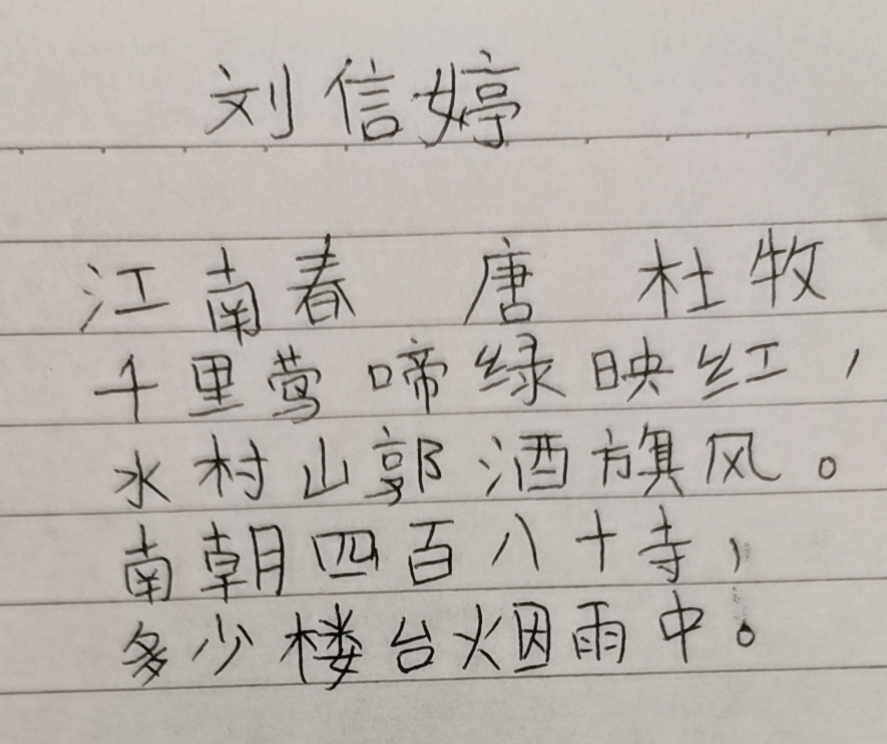 刘信婷
江南春 唐 杜牧
千里莺啼绿映红，
水村山郭酒旗风。
南朝四百八十寺，
多少楼台烟雨中。